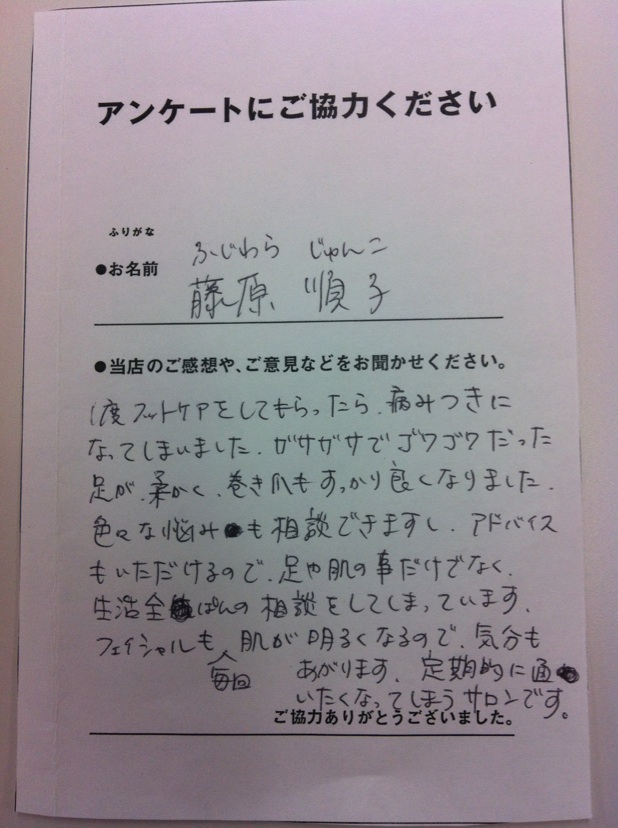 アンケートにご協力ください
ふりがな
ふじわら じゅんこ
●お名前
藤原 順子
●当店のご感想や、ご意見などをお聞かせください。
1度フットケアをしてもらったら、病みつきに
なってしまいました。ガサガサでゴワゴワだった
足が、柔かく、巻き爪もすっかり良くなりました。
色々な悩みも相談できますし、アドバイス
もいただけるので、足や肌の事だけでなく、
生活全ぱんの相談をしてしまっています。
フェイシャルも毎回肌が明るくなるので、気分も
あがります、定期的に通
いたくなってしまうサロンです。
ご協力ありがとうございました。